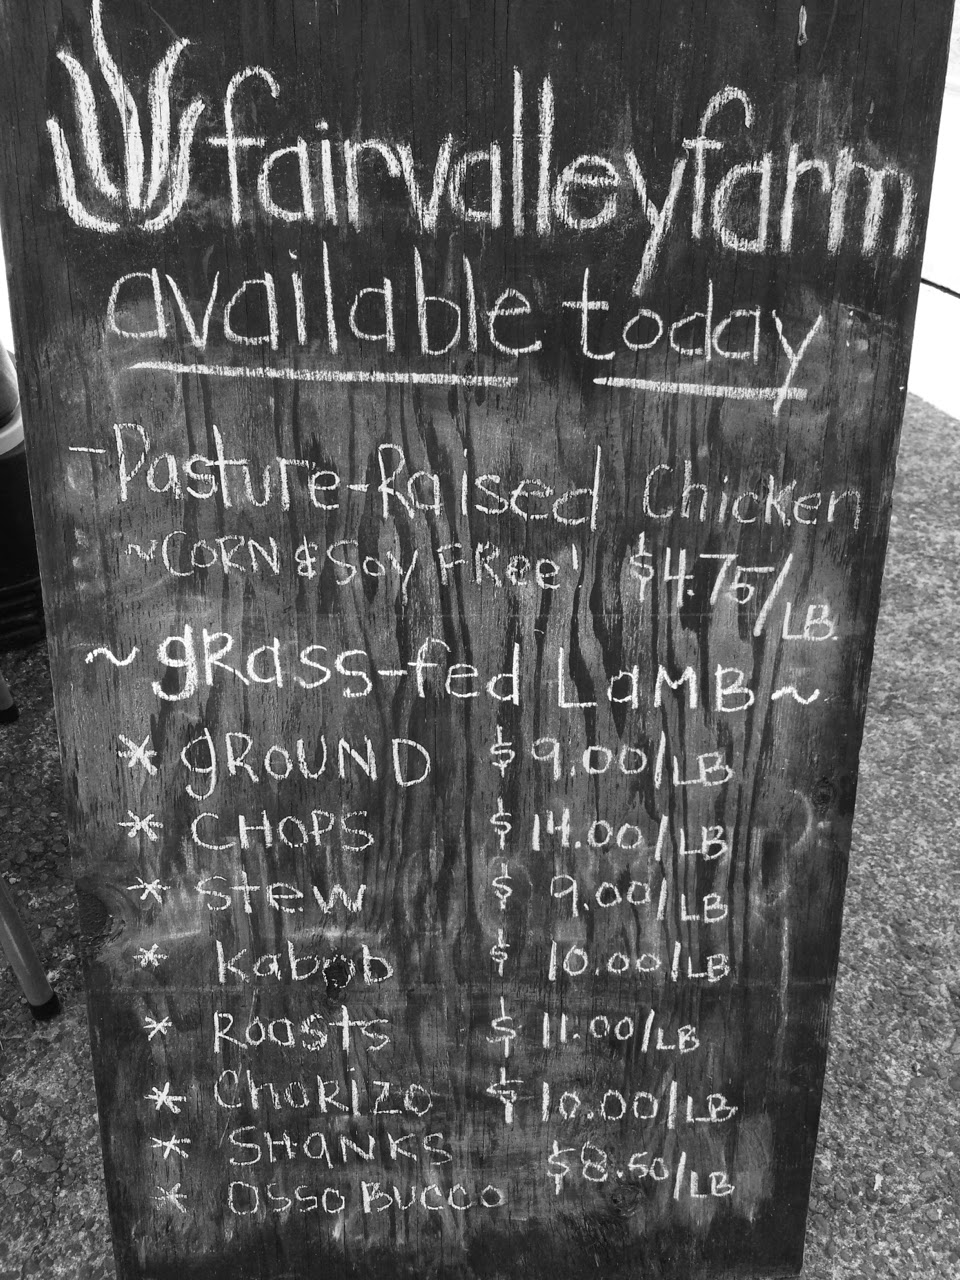 fairvalleyfarm
available today
-Pasture-Raised Chicken
~CORN & SOY FRee! $4.75/LB.
~gRass-fed LaMB~
* gROUND $9.00/LB
* CHOPS $14.00/LB
* stew $9.00/LB
* kabob $10.00/LB
* Roasts $11.00/LB
* ChoRizo $10.00/LB
* SHaNKS
$8.50/LB
* OSSO BUCCO